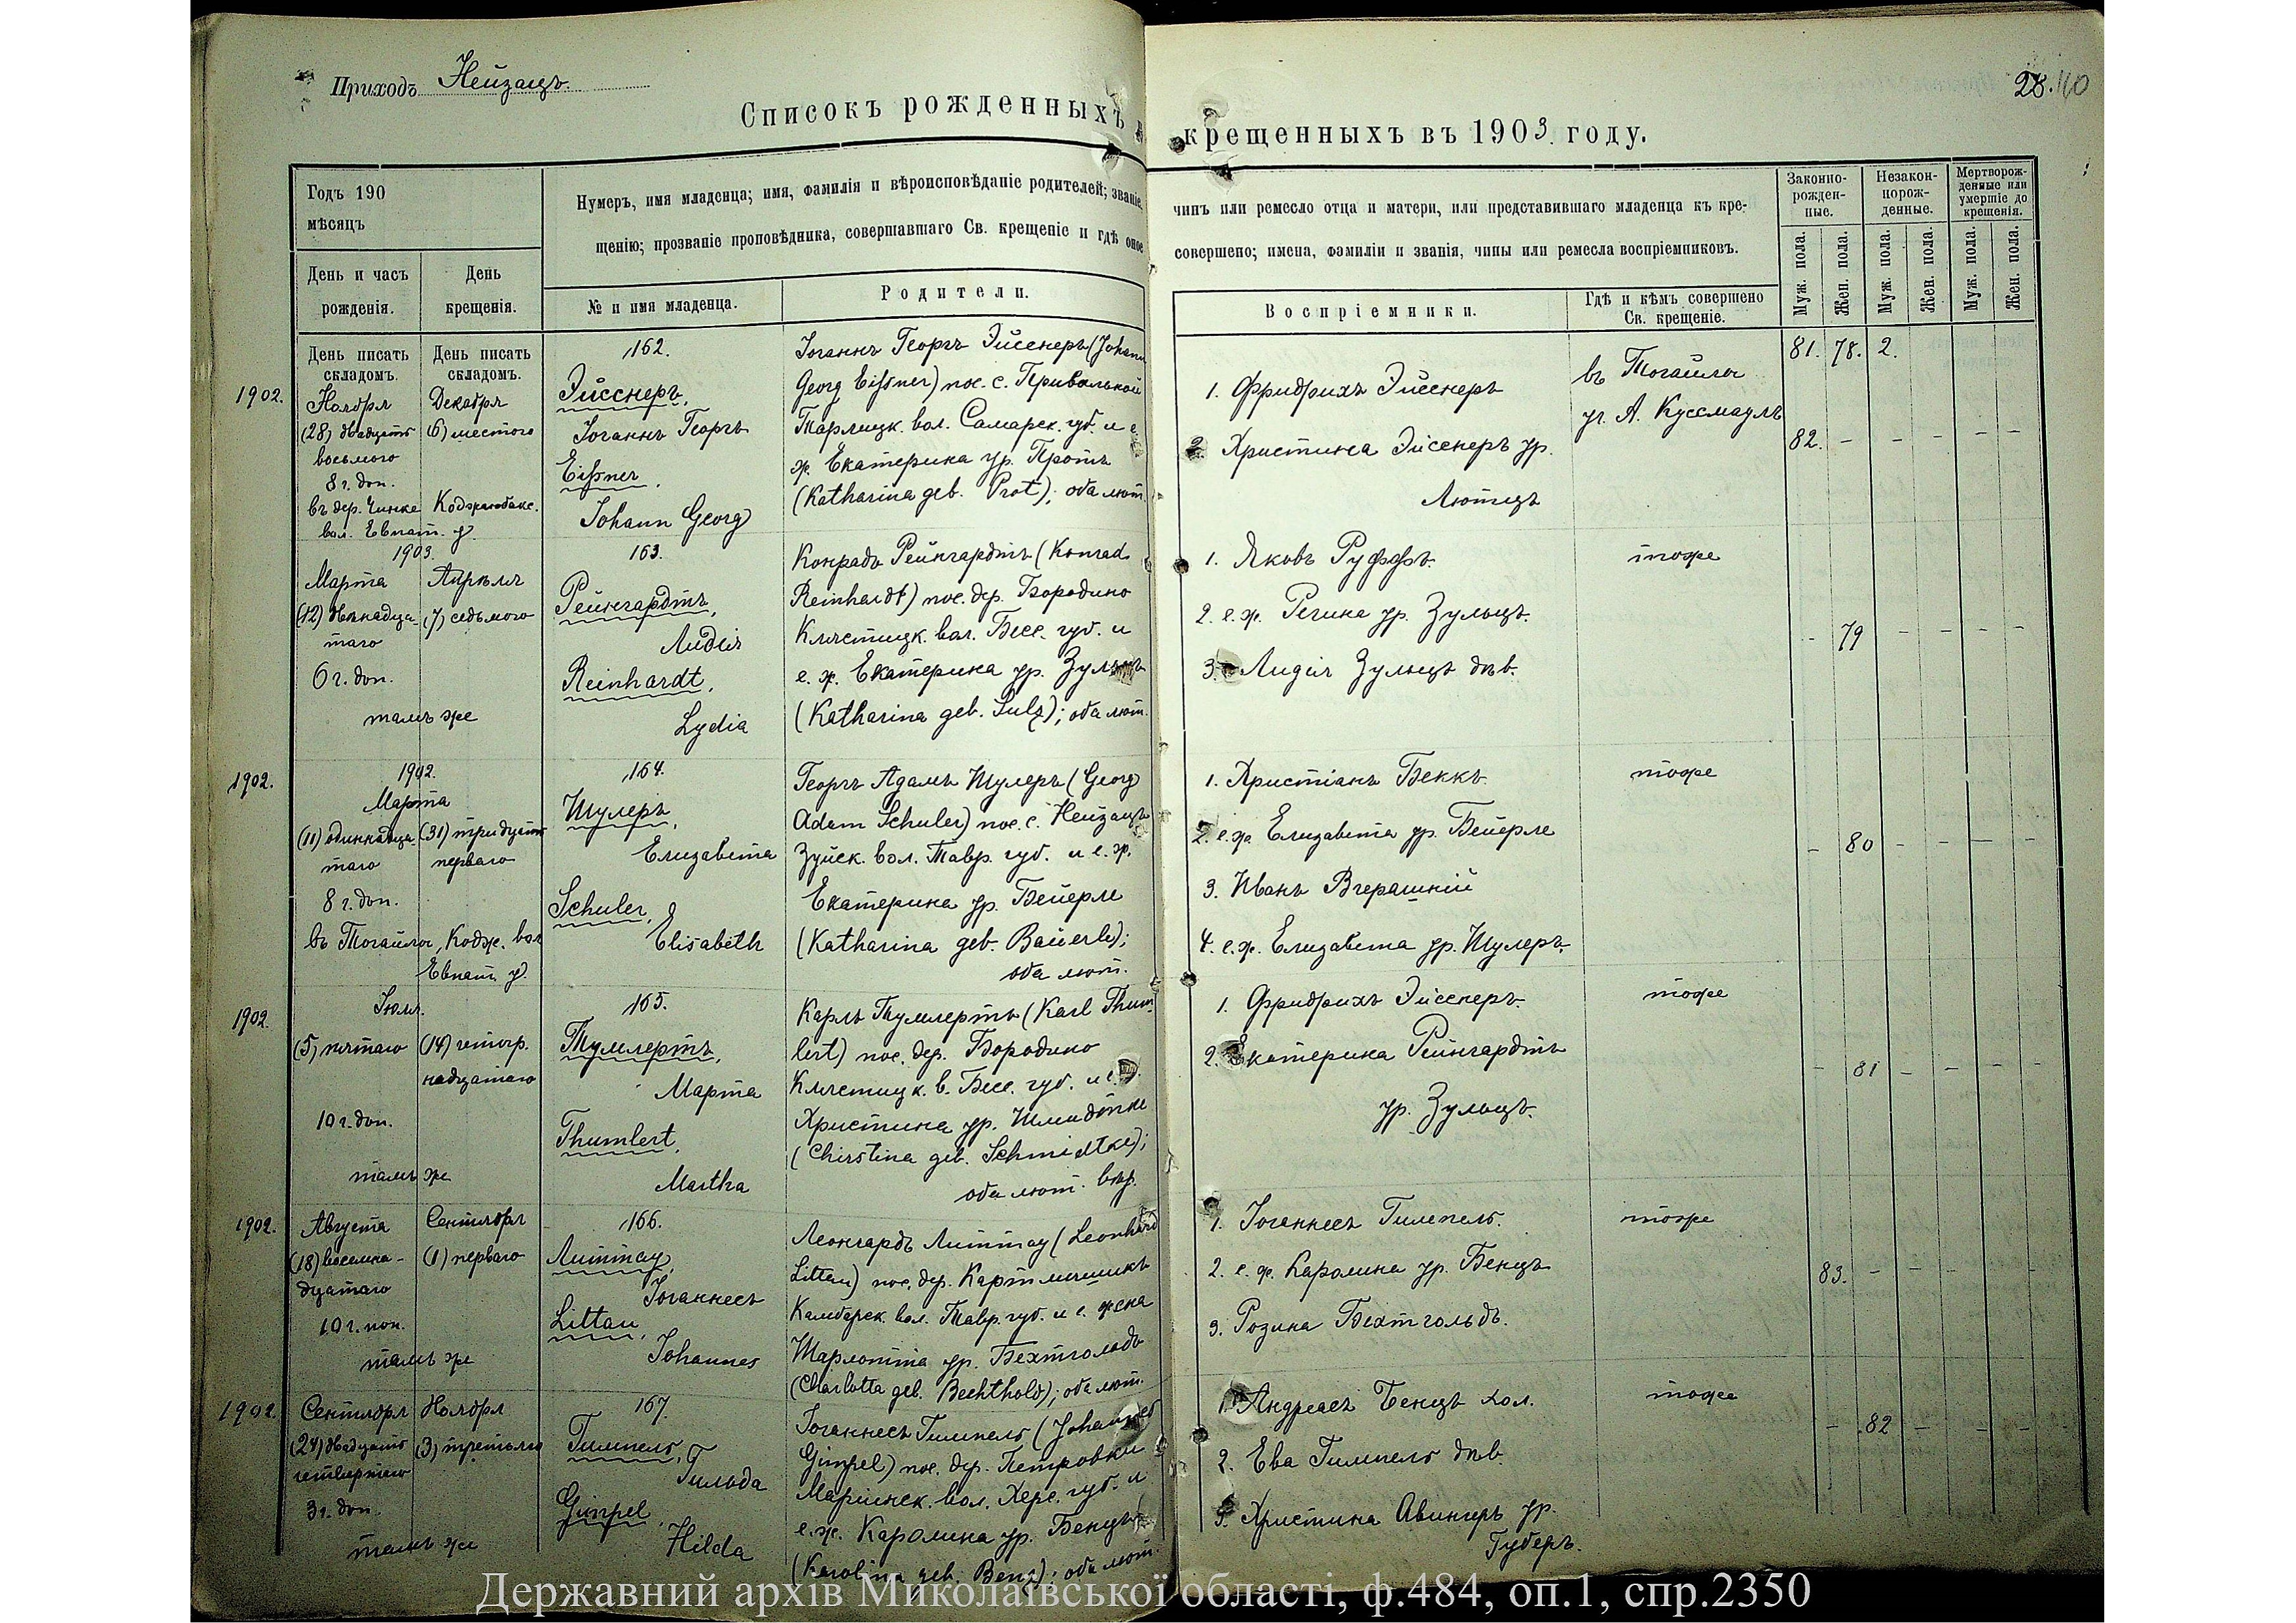 Приходъ Нейзацъ.
28. 110
Списокъ рожденныхъ и крещенныхъ въ 1903 году.
Годъ 190
мѣсяцъ
Нумеръ, имя младенца; имя, фамилія и вѣроисповѣданіе родителей; званіе,
щенію; прозваніе проповѣдника, совершавшаго Св. крещеніе и гдѣ оное
чинъ или ремесло отца и матери, или представившаго младенца къ кре-
совершено; имена, фамиліи и званія, чины или ремесла воспріемниковъ.
Законно-
рожден-
ные.
Незакон-
норож-
денные.
Мертворож-
денные или
умершіе до
крещенія.
День и часъ
рожденія.
День
крещенія.
№ и имя младенца.
Родители.
Воспріемники.
Гдѣ и кѣмъ совершено
Св. крещеніе.
Муж. пола.
Жен. пола.
Муж. пола.
Жен. пола.
Муж. пола.
Жен. пола.
День писать
складомъ.
День писать
складомъ.
81. 78. 2.
1902.
Ноября
(28) двадцать
восьмого
8 г. доп.
Декабря
(6) шестого
въ дер. Чинке Коджамбакс.
вол. Евпат. у.
162.
Эйсснеръ,
Іоганнъ Георгъ
Eißner,
Johann Georg
Іоганнъ Георгъ Эйсснеръ (Johann
Georg Eißner) пос. с. Привальной
Тарлицк. вол. Самарск. губ. и е.
ж. Екатерина ур. Протъ
(Katharina geb. Prot); оба лют.
1. Фридрихъ Эйсснеръ
2. Христина Эйсснеръ ур.
Лютцъ
въ Тогайлы
уч. А. Куссмауль
82. - - - - -
1903.
Марта
(12) двѣнадца-
таго
6 г. доп.
Апрѣля
(7) седьмого
тамъ же
163.
Рейнгардтъ,
Лидія
Reinhardt,
Lydia
Конрадъ Рейнгардтъ (Konrad
Reinhardt) пос. дер. Бородино
Клястицк. вол. Бесс. губ. и
е. ж. Екатерина ур. Зульцъ
(Katharina geb. Sulz); оба лют.
1. Яковъ Руффъ.
2. е. ж. Регина ур. Зульцъ.
3. Лидія Зульцъ дѣв.
тоже
- 79 - - - -
1902.
1902.
Марта
(11) одиннадца-
таго
8 г. доп.
(31) тридцать
перваго
въ Тогайлы, Кодж. вол
Евпат. у.
164.
Шулеръ,
Елизавета
Schuler,
Elisabeth
Георгъ Адамъ Шулеръ (Georg
Adam Schuler) пос. с. Нейзацъ
Зуйск. вол. Тавр. губ. и е. ж.
Екатерина ур. Бейерле
(Katharina geb. Bäuerle);
оба лют.
1. Христіанъ Беккъ.
2. е. ж. Елизавета ур. Бейерле
3. Иванъ Вчерашній
4. е. ж. Елизавета ур. Шулеръ.
тоже
- 80 - - - -
1902.
Іюля.
(5) пятаго
10 г. доп.
(14) четыр.
надцатаго
тамъ же
165.
Тумлертъ,
Марта
Thumlert,
Martha
Карлъ Тумлертъ (Karl Thum-
lert) пос. дер. Бородино
Клястицк. в. Бесс. губ. и е. ж.
Христина ур. Шмидтке
(Chirstina geb. Schmidtke);
оба лют. вѣр.
1. Фридрихъ Эйсснеръ.
2. Екатерина Рейнгардтъ
ур. Зульцъ.
тоже
- 81 - - - -
1902.
Августа
(18) восемна-
дцатаго
10 г. поп.
Сентября
(1) перваго
тамъ же
166.
Литтау,
Іоганнесъ
Littau,
Johannes
Леонгардъ Литтау (Leonhard
Littau) пос. дер. Картмышикъ
Камбарск. вол. Тавр. губ. и е. жена
Шарлотта ур. Бехтгольдъ
(Charlotta geb. Bechthold); оба лют.
1. Іоганнесъ Гимпель.
2. е. ж. Каролина ур. Бенцъ
3. Розина Бехтгольдъ.
тоже
83. - - - - -
1902.
Сентября
(24) двадцать
четвертаго
3 г. доп.
Ноября
(3) третьяго
тамъ же
167.
Гимпель,
Гильда
Gimpel,
Hilda
Іоганнесъ Гимпель (Johannes
Gimpel) пос. дер. Петровки
Маріинск. вол. Херс. губ. и
е. ж. Каролина ур. Бенцъ
(Karolina geb. Benz); оба лют.
1. Андреасъ Бенцъ хол.
2. Ева Гимпель дѣв.
3. Христина Авингеръ ур.
Губеръ.
тоже
- 82 - - - -
Державний архів Миколаївської області, ф.484, оп.1, спр.2350